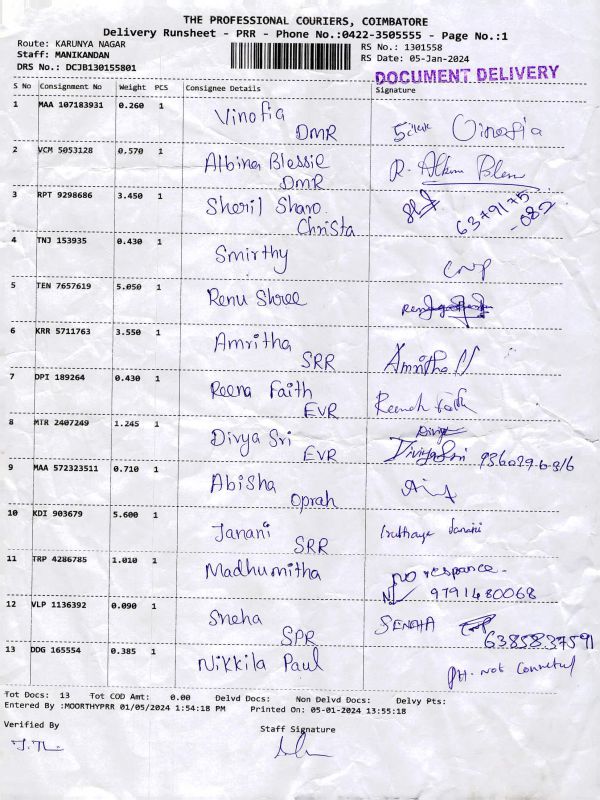 THE PROFESSIONAL COURIERS, COIMBATORE
Delivery Runsheet - PRR - Phone No.:0422-3505555 - Page No.:1
Route: KARUNYA NAGAR
RS No.: 1301558
Staff: MANIKANDAN
RS Date: 05-Jan-2024
DRS No.: DCJB130155801
DOCUMENT DELIVERY
S No Consignment No Weight PCS Consignee Details Signature
1 MAA 107183931 0.260 1 Vinofia Vinofia
DMR
2 VCM 5053128 0.570 1 Albina Blessie R.
DMR
3 RPT 9298686 3.450 1 Sheril Sharo 6379175
Christa -082
4 TNJ 153935 0.430 1 Smirthy
5 TEN 7657619 5.050 1 Renu Shree
6 KRR 5711763 3.550 1 Amritha Amritha
SRR
7 DPI 189264 0.430 1 Reena Faith
EVR
8 MTR 2407249 1.245 1 Divya Sri Divya
EVR DivyaSri
9 MAA 572323511 0.710 1 Abisha
Oprah
10 KDI 903679 5.600 1 Janani Janani
SRR
11 TRP 4286785 1.010 1 Madhumitha no respance-
9791480068
12 VLP 1136392 0.090 1 Sneha SENEHA
SPR 6385837591
13 DDG 165554 0.385 1 Nikkila Paul PH. not
Tot Docs: 13 Tot COD Amt: 0.00 Delvd Docs: Non Delvd Docs: Delvy Pts:
Entered By :MOORTHYPRR 01/05/2024 1:54:18 PM Printed On: 05-01-2024 13:55:18
Verified By
Staff Signature